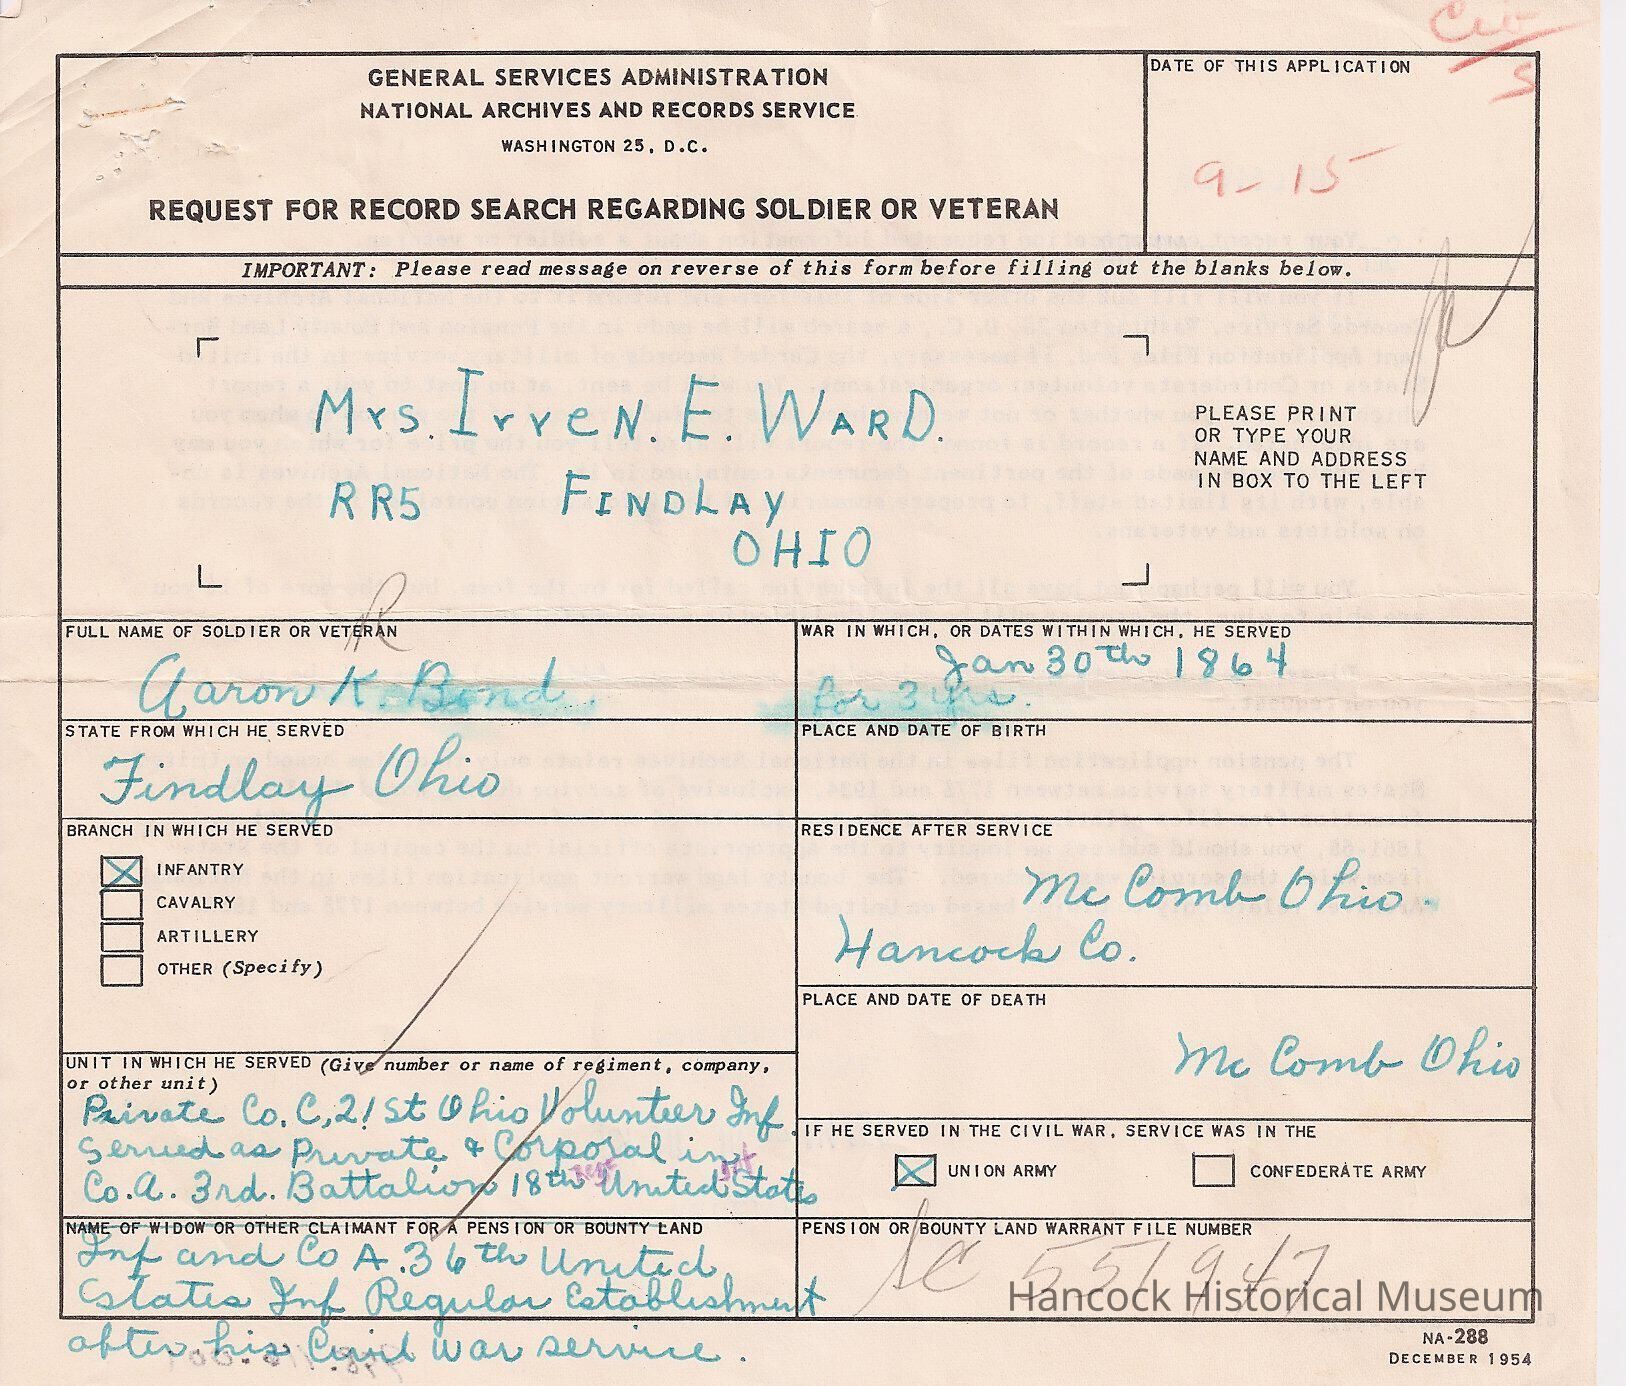 GENERAL SERVICES ADMINISTRATION
NATIONAL ARCHIVES AND RECORDS SERVICE
WASHINGTON 25, D.C.
REQUEST FOR RECORD SEARCH REGARDING SOLDIER OR VETERAN
DATE OF THIS APPLICATION
9-15
IMPORTANT: Please read message on reverse of this form before filling out the blanks below.
Mrs. IrveN. E. WARD.
RR5 FINDLAY
OHIO
PLEASE PRINT
OR TYPE YOUR
NAME AND ADDRESS
IN BOX TO THE LEFT
FULL NAME OF SOLDIER OR VETERAN
R
Aaron K. Bond.
WAR IN WHICH, OR DATES WITHIN WHICH, HE SERVED
Jan 30th 1864
for 3 yrs.
STATE FROM WHICH HE SERVED
Findlay Ohio
PLACE AND DATE OF BIRTH
BRANCH IN WHICH HE SERVED
INFANTRY
CAVALRY
ARTILLERY
OTHER (Specify)
RESIDENCE AFTER SERVICE
Mc Comb Ohio.
Hancock Co.
PLACE AND DATE OF DEATH
Mc Comb Ohio
UNIT IN WHICH HE SERVED (Give number or name of regiment, company,
or other unit)
Private Co. C, 21st Ohio Volunteer Inf.
Served as Private & Corporal in
Co. A. 3rd. Battalion 18th United States
IF HE SERVED IN THE CIVIL WAR, SERVICE WAS IN THE
UNION ARMY
CONFEDERATE ARMY
NAME OF WIDOW OR OTHER CLAIMANT FOR A PENSION OR BOUNTY LAND
Inf and Co A. 36th United
States Inf Regular Establishment
after his Civil War service.
PENSION OR BOUNTY LAND WARRANT FILE NUMBER
SC 551947
Hancock Historical Museum
NA-288
DECEMBER 1954